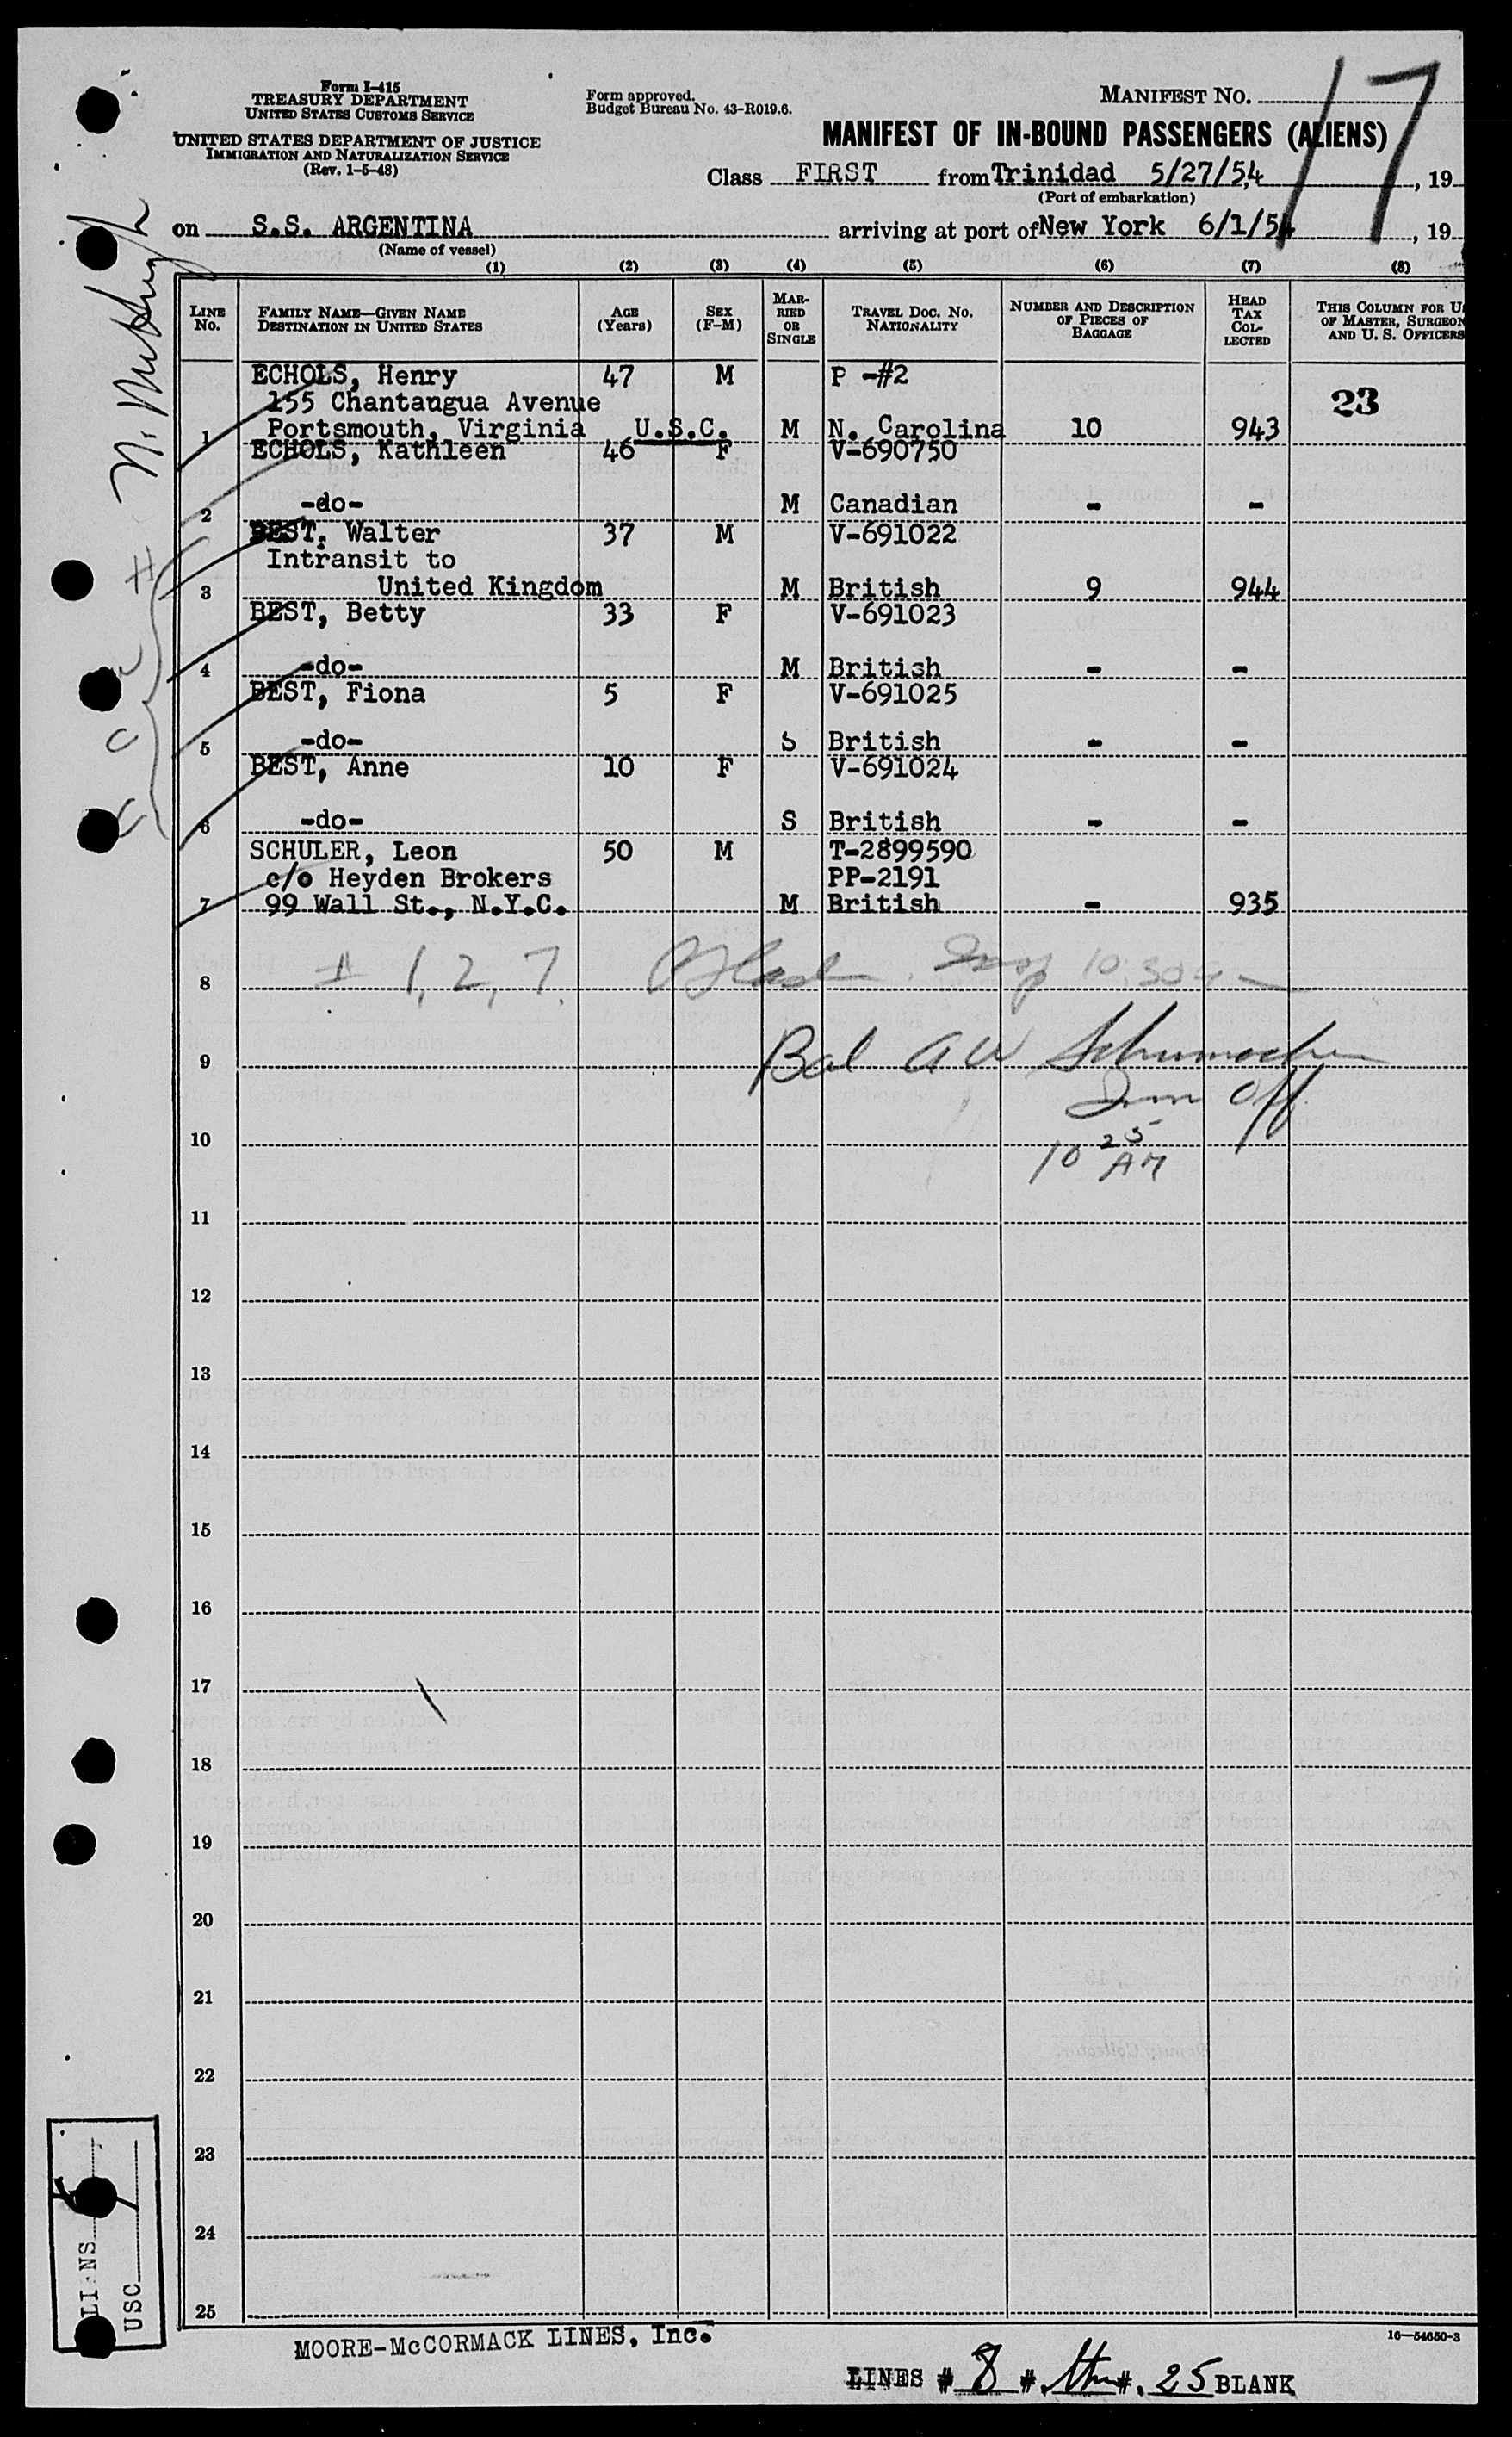 Form I-415
TREASURY DEPARTMENT
UNITED STATES CUSTOMS SERVICE
UNITED STATES DEPARTMENT OF JUSTICE
IMMIGRATION AND NATURALIZATION SERVICE
(Rev. 1-5-48)
Form approved.
Budget Bureau No. 43-R019.6.
MANIFEST NO. 17
MANIFEST OF IN-BOUND PASSENGERS (ALIENS)
Class FIRST from Trinidad 5/27/54, 19
(Port of embarkation)
on S.S. ARGENTINA arriving at port of New York 6/1/54, 19
(Name of vessel)
(1) (2) (3) (4) (5) (6) (7) (8)
LINE No. FAMILY NAME—GIVEN NAME DESTINATION IN UNITED STATES AGE (Years) SEX (F-M) MARRIED OR SINGLE TRAVEL DOC. NO. NATIONALITY NUMBER AND DESCRIPTION OF PIECES OF BAGGAGE HEAD TAX COLLECTED THIS COLUMN FOR U OF MASTER, SURGEON AND U. S. OFFICERS
ECHOLS, Henry 47 M P -#2
155 Chantangua Avenue 23
1 Portsmouth, Virginia U.S.C. M N. Carolina 10 943
ECHOLS, Kathleen 46 F V-690750
2 -do- M Canadian - -
BEST, Walter 37 M V-691022
Intransit to
3 United Kingdom M British 9 944
BEST, Betty 33 F V-691023
4 -do- M British - -
BEST, Fiona 5 F V-691025
5 -do- S British - -
BEST, Anne 10 F V-691024
6 -do- S British - -
SCHULER, Leon 50 M T-2899590
c/o Heyden Brokers PP-2191
7 99 Wall St., N.Y.C. M British - 935
8 # 1, 2, 7. Insp 10:30
9 Bal A W Schumacher
Imm Off
10
10 25 AM
11
12
13
14
15
16
17
18
19
20
21
22
23
24
25
LI NS
USC
MOORE-McCORMACK LINES, Inc.
16—54650-3
LINES # 8 # thru #. 25 BLANK